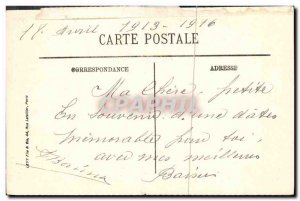 17 avril 1913-1916
CARTE POSTALE
CORRESPONDANCE
ADRESSE
Ma Chère petite
En souvenir d'une date
mémorable pour toi,
avec mes meilleurs
Baisers